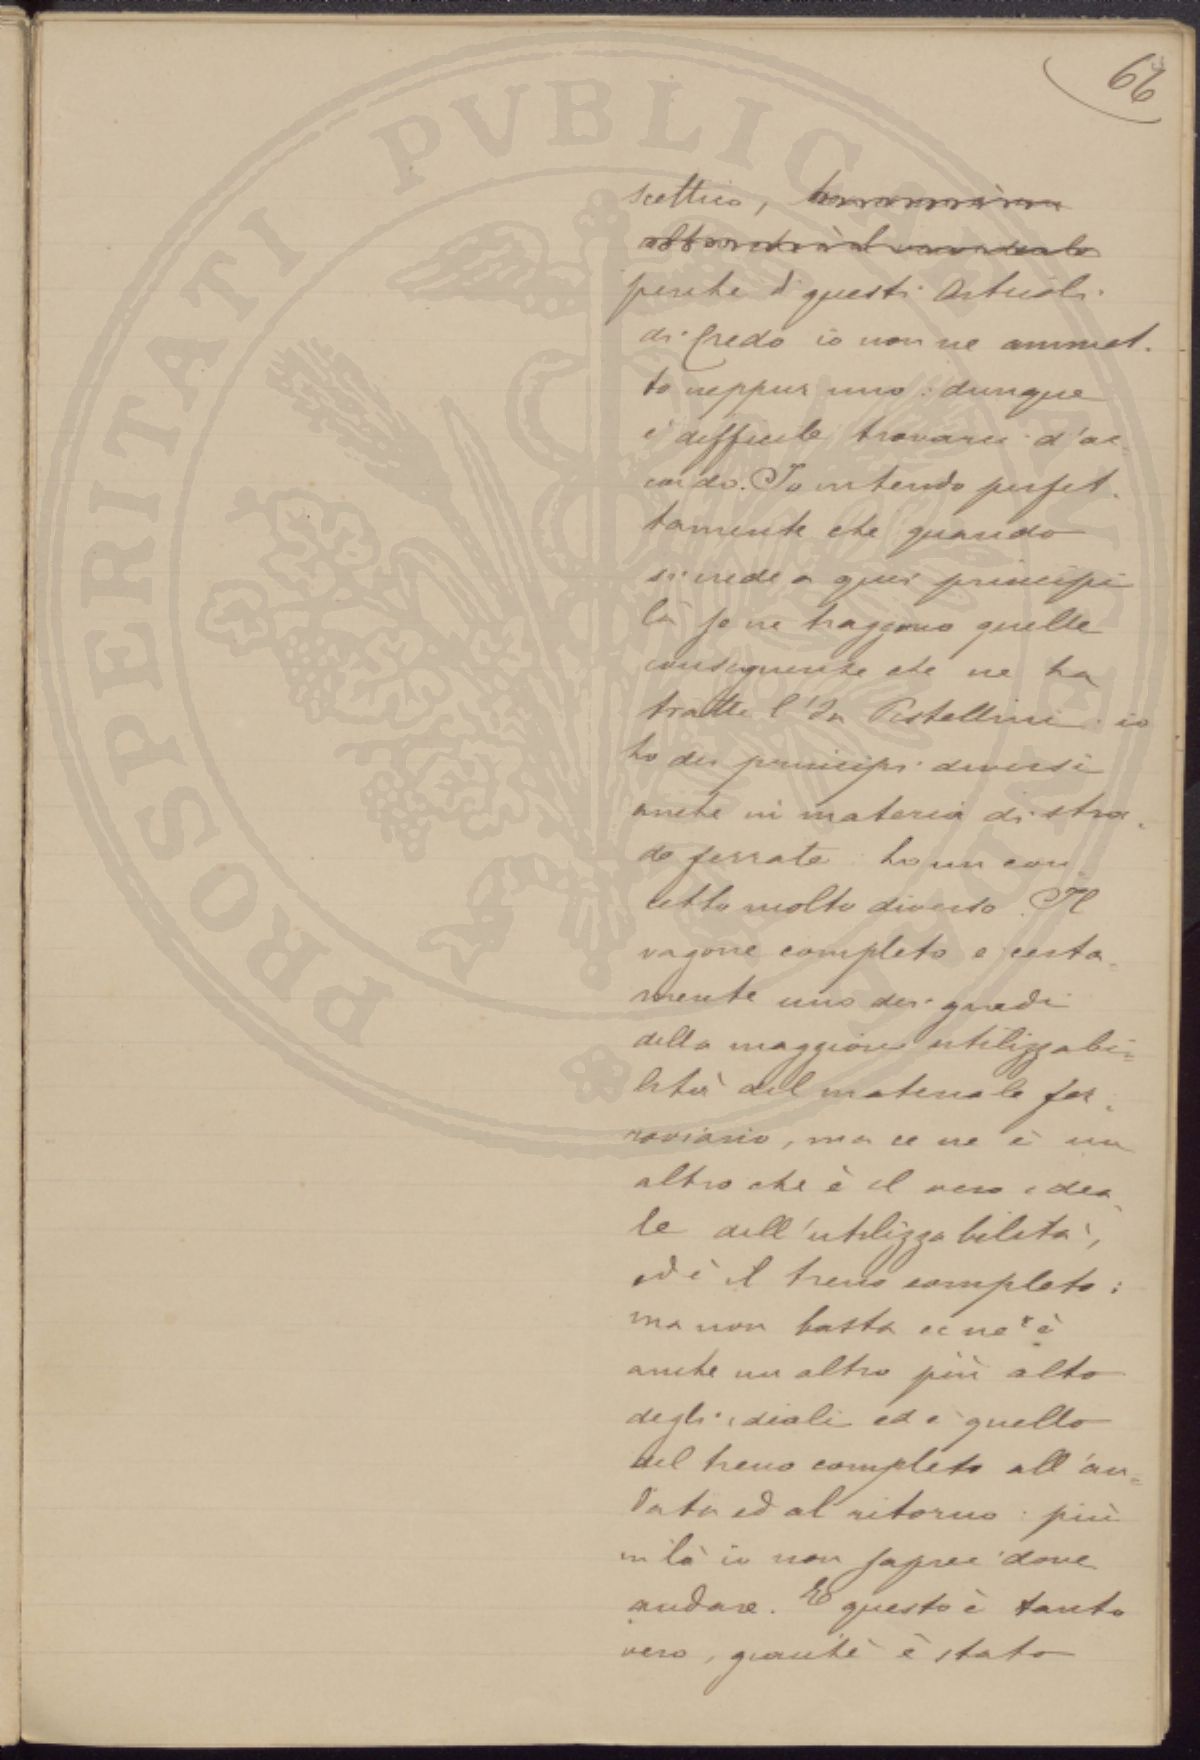 66
PROSPERITATI PVBLICAE
scettico,
perchè di questi Articoli
di Credo io non ne ammet-
to neppur uno: dunque
è difficile trovarci d'ac-
cordo. Io intendo perfet-
tamente che quando
si crede a quei principi
là se ne traggono quelle
conseguenze che ne ha
tratte l'On Pistellini: io
ho dei principi diversi
anche in materia di stra-
de ferrate: ho un con
cetto molto diverso. Il
vagone completo e certa-
mente uno dei gradi
della maggiore utilizzabi-
lità del materiale fer-
roviario, ma ce ne è un
altro che è il vero idea
le dell'utilizzabilità,
ed è il treno completo:
ma non basta ce ne è
anche un altro più alto
degli ideali ed è quello
del treno completo all'an-
data ed al ritorno: più
in là io non saprei dove
andare. E questo è tanto
vero, giacchè è stato